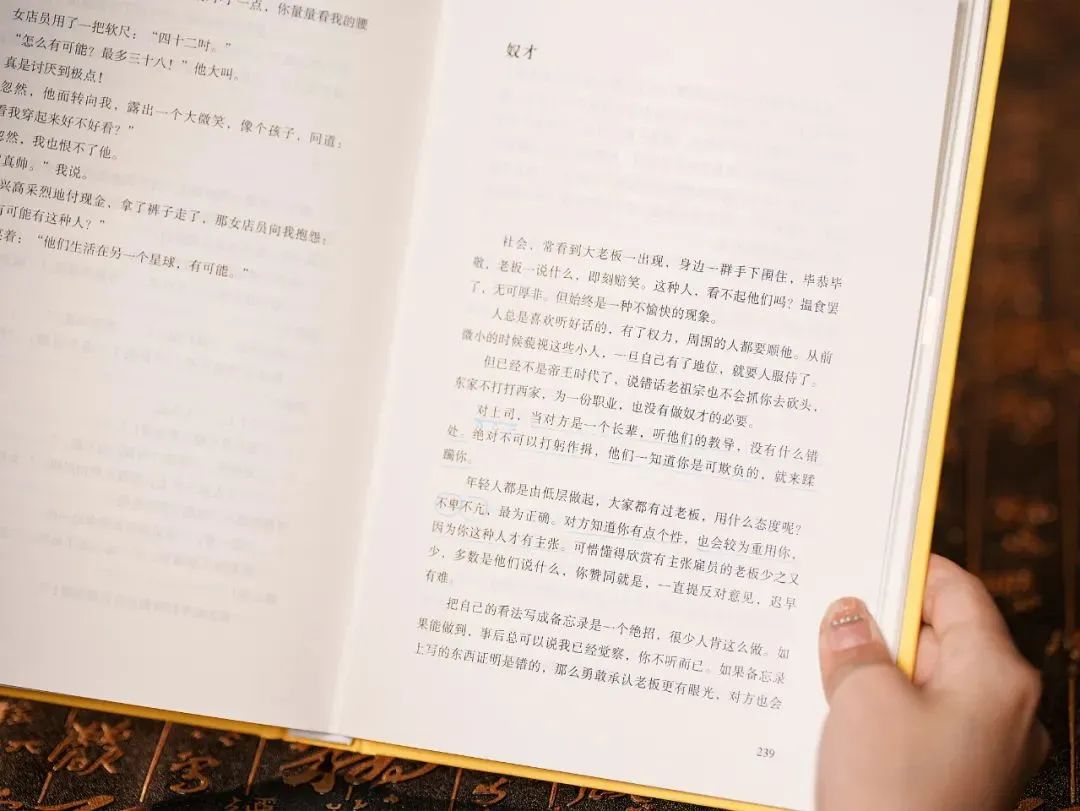 一点，你量量看我的腰
女店员用了一把软尺：“四十二吋。”
“怎么有可能？最多三十八！”他大叫。
真是讨厌到极点！
忽然，他面转向我，露出一个大微笑，像个孩子，问道：
看我穿起来好不好看？”
忽然，我也恨不了他。
“真帅。”我说。
兴高采烈地付现金、拿了裤子走了，那女店员向我抱怨：
有可能有这种人？”
着：“他们生活在另一个星球，有可能。”
奴才
社会，常看到大老板一出现，身边一群手下围住，毕恭毕
敬，老板一说什么，即刻赔笑。这种人，看不起他们吗？揾食罢
了，无可厚非。但始终是一种不愉快的现象。
人总是喜欢听好话的，有了权力，周围的人都要顺他。从前
微小的时候藐视这些小人，一旦自己有了地位，就要人服侍了。
但已经不是帝王时代了，说错话老祖宗也不会抓你去砍头，
东家不打打西家，为一份职业，也没有做奴才的必要。
对上司，当对方是一个长辈，听他们的教导，没有什么错
处。绝对不可以打躬作揖，他们一知道你是可欺负的，就来蹂
躏你。
年轻人都是由低层做起，大家都有过老板，用什么态度呢？
不卑不亢，最为正确。对方知道你有点个性，也会较为重用你，
因为你这种人才有主张。可惜懂得欣赏有主张雇员的老板少之又
少，多数是他们说什么，你赞同就是，一直提反对意见，迟早
有难。
把自己的看法写成备忘录是一个绝招，很少人肯这么做。如
果能做到，事后总可以说我已经觉察，你不听而已。如果备忘录
上写的东西证明是错的，那么勇敢承认老板更有眼光，对方也会
239